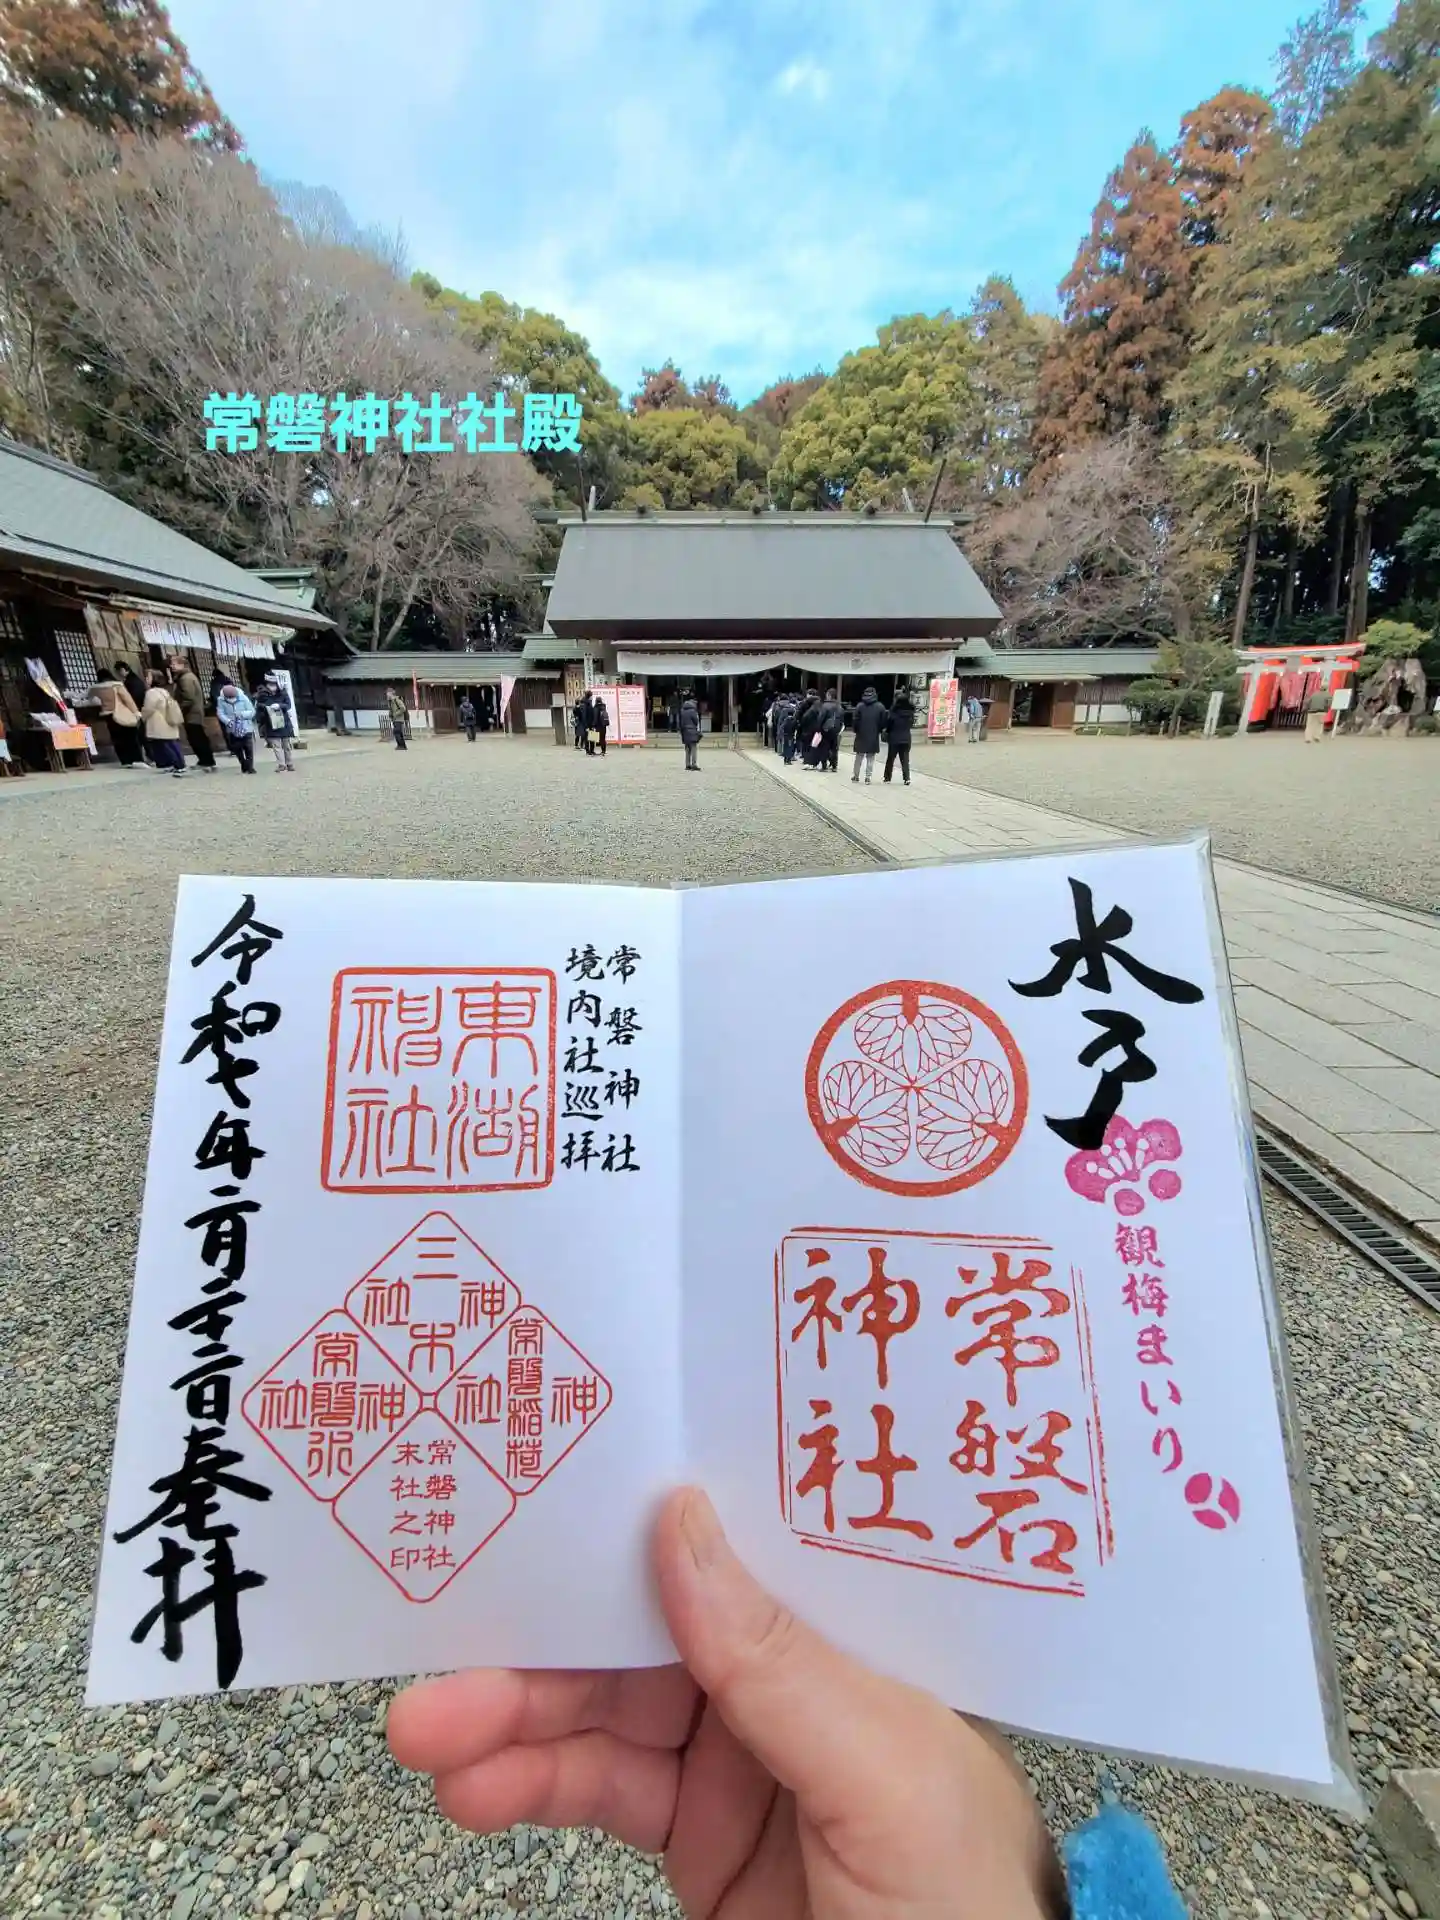 常磐神社社殿
水戸
観梅まいり
常磐
神社
常磐神社
境内社巡拝
東湖
神社
三木
神社
常磐稲荷
神社
常磐
神社
常磐神社
末社之印
令和七年二月二十二日奉拝